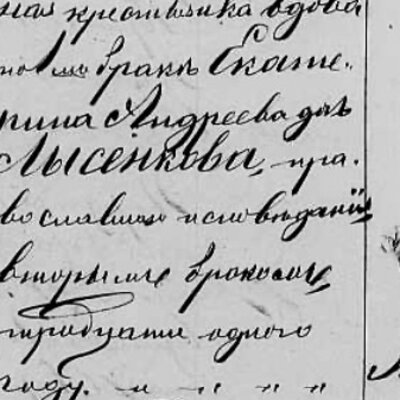 ная крестьянка вдова
по 1 мъ бракѣ Екате-
рина Андреева дочь
Лысенкова, пра-
вославнаго исповѣданія,
вторымъ бракомъ,
тридцати одного
году. " " " "